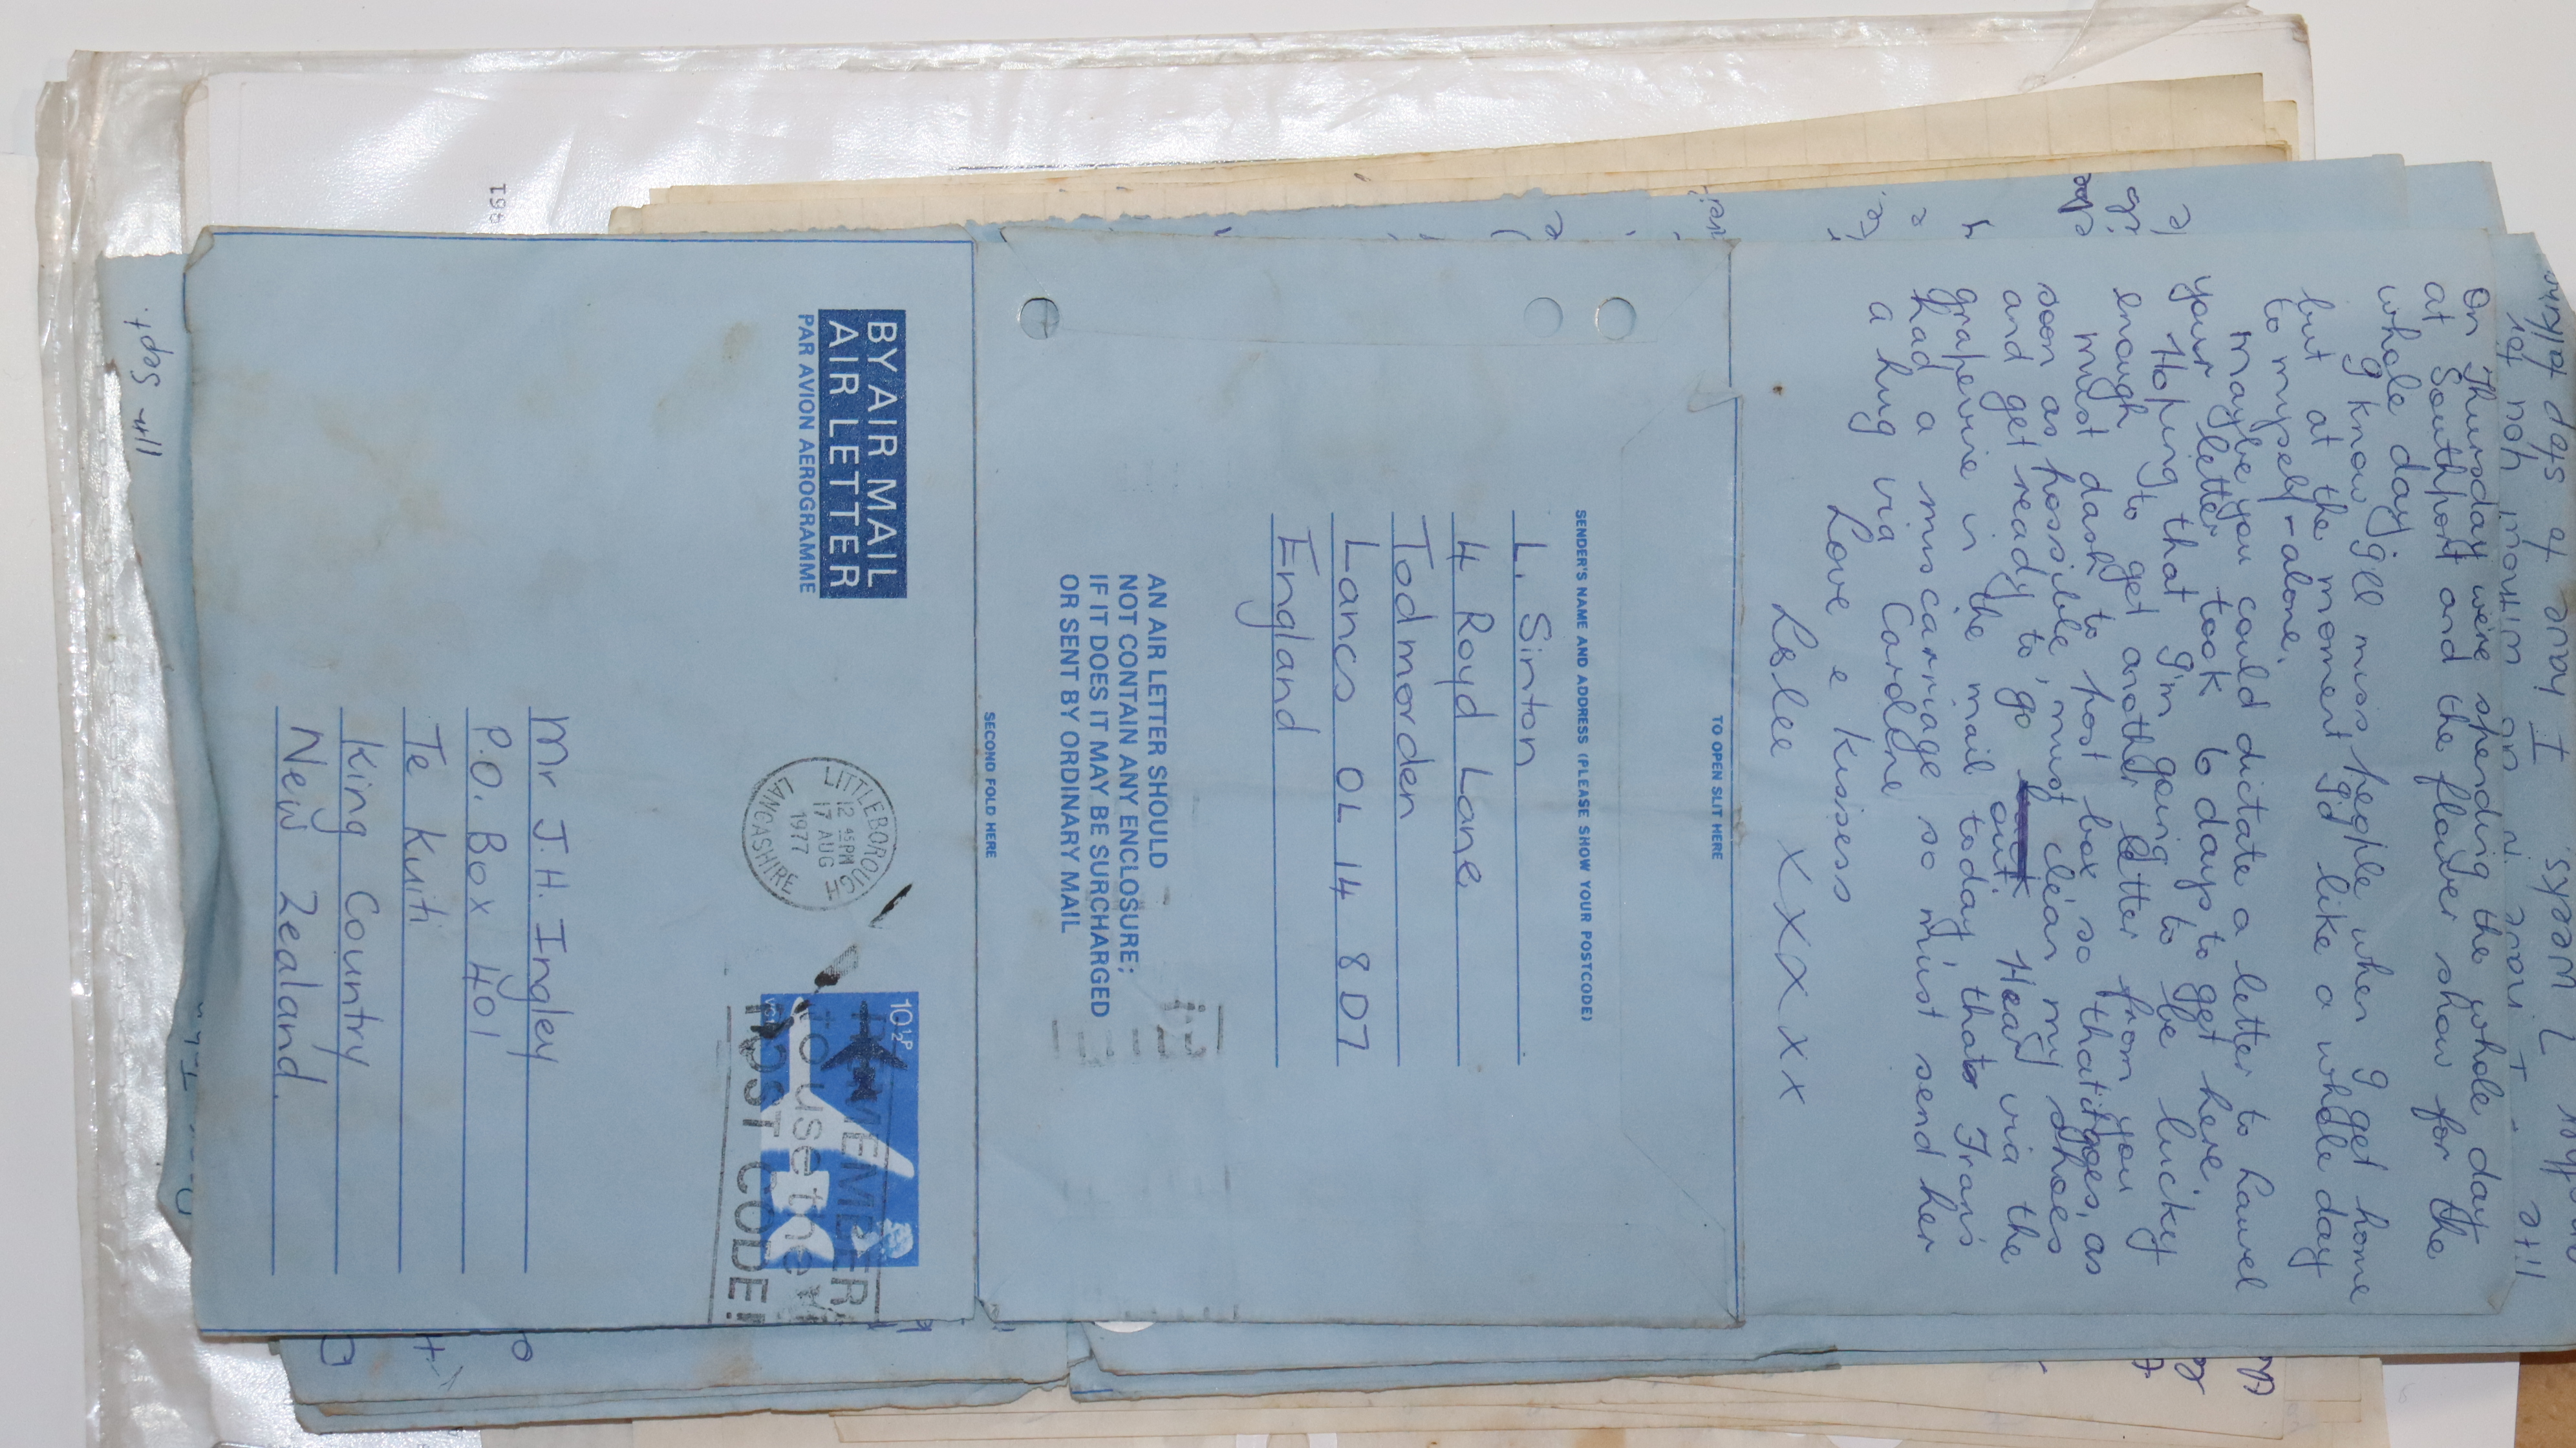 On Thursday we're spending the whole day
at Southport and the flower show for the
whole day.
I know I'll miss people when I get home
but at the moment I'd like a whole day
to myself - alone.
Maybe you could dictate a letter to
your letter took 6 days to get here.
Hoping that I'm going to be lucky
enough to get another letter from you
must dash to post box so that it goes, as
soon as possible, must clean my shoes
and get ready to go out. Hear via the
grapevine in the mail today that Fran's
had a miscarriage so must send her
a hug via Caroline
Love & kisses
Lslee X X X X X
TO OPEN SLIT HERE
SENDER'S NAME AND ADDRESS (PLEASE SHOW YOUR POSTCODE)
L. Sinton
4 Royd Lane
Todmorden
Lancs OL14 8DT
England
AN AIR LETTER SHOULD
NOT CONTAIN ANY ENCLOSURE;
IF IT DOES IT MAY BE SURCHARGED
OR SENT BY ORDINARY MAIL
SECOND FOLD HERE
BY AIR MAIL
AIR LETTER
PAR AVION AEROGRAMME
LITTLEBOROUGH
12 45 PM
17 AUG
1977
LANCASHIRE
10½P
REMEMBER
to use the
POST CODE!
Mr J.H. Ingley
P.O. Box 401
Te Kuiti
King Country
New Zealand.
11th Sept.